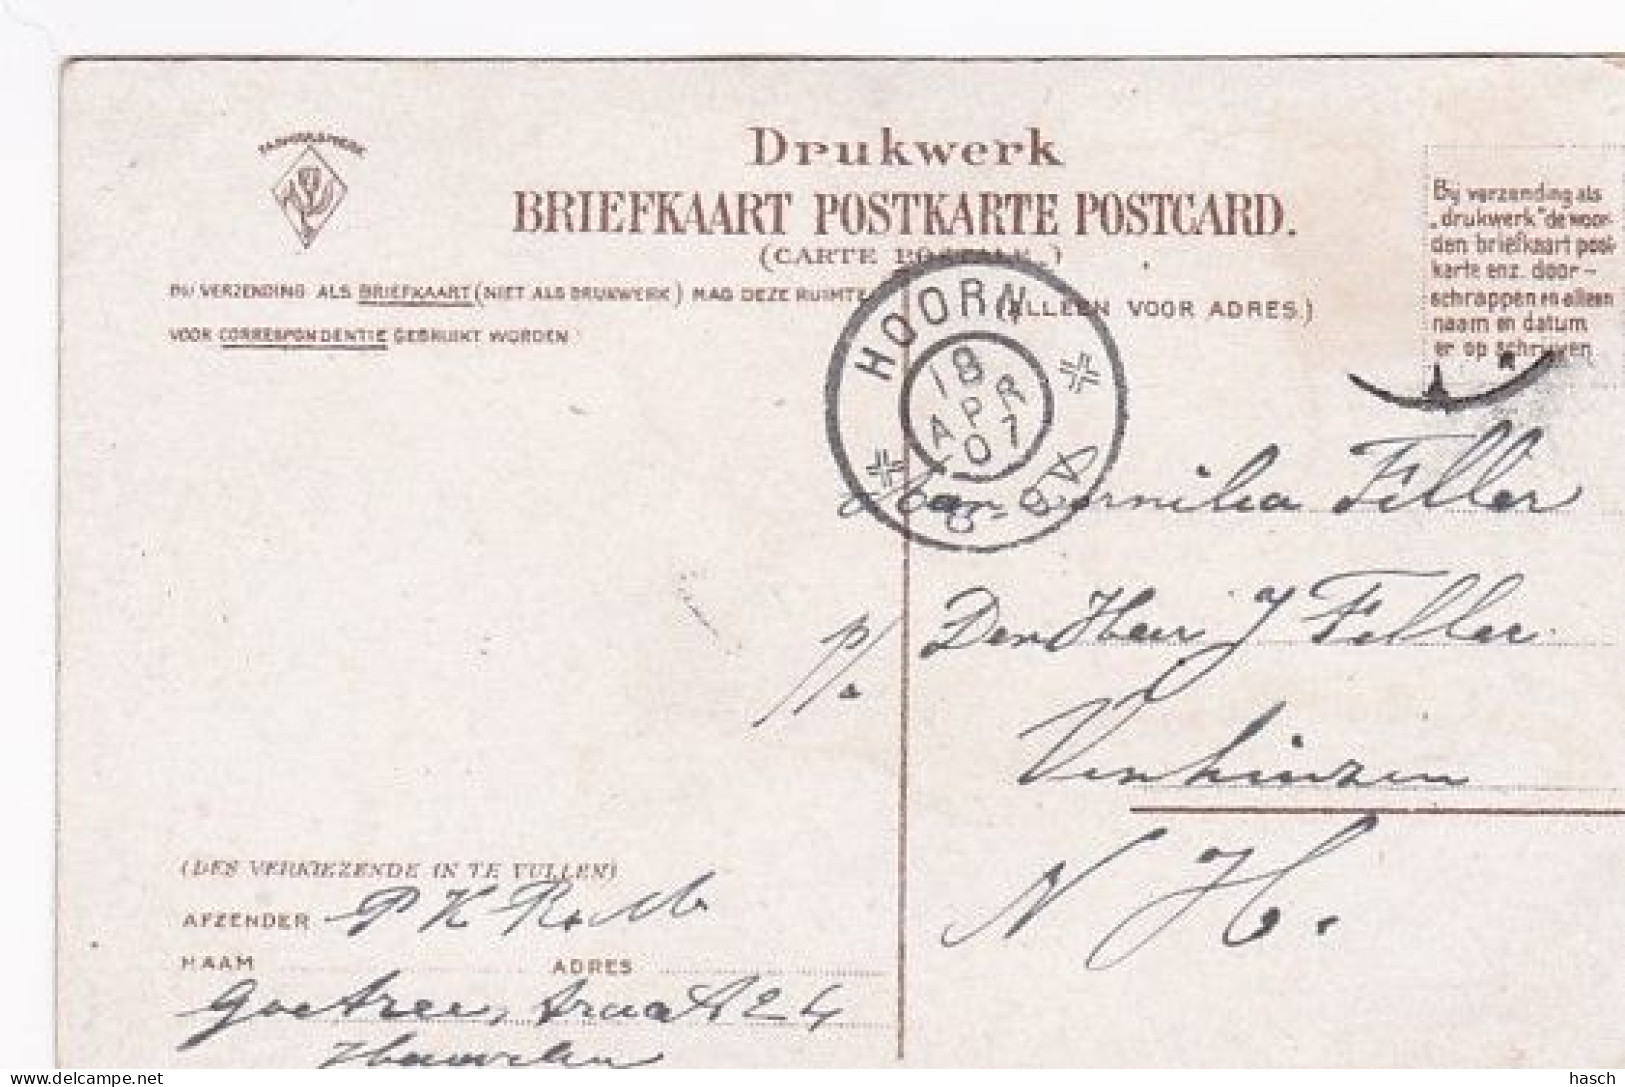 FABRIEKSMERK
Drukwerk
BRIEFKAART POSTKARTE POSTCARD.
(CARTE POSTALE.)
BIJ VERZENDING ALS BRIEFKAART (NIET ALS DRUKWERK) MAG DEZE RUIMTE
VOOR CORRESPONDENTIE GEBRUIKT WORDEN
(ALLEEN VOOR ADRES.)
Bij verzending als
"drukwerk" de woor-
den briefkaart post-
karte enz. door-
schrappen en alleen
naam en datum
er op schrijven
HOORN
18
APR
07
8-9V
Aan Cornilia Feller
p/a Den Heer J Feller
Venhuizen
N H.
(DES VERKIEZENDE IN TE VULLEN)
AFZENDER P K
NAAM ADRES
straat 24
hasch
delcampe.net